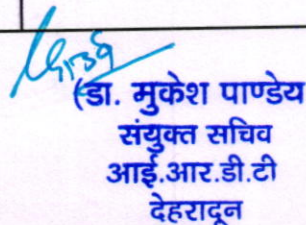 (डा. मुकेश पाण्डेय
संयुक्त सचिव
आई.आर.डी.टी
देहरादून